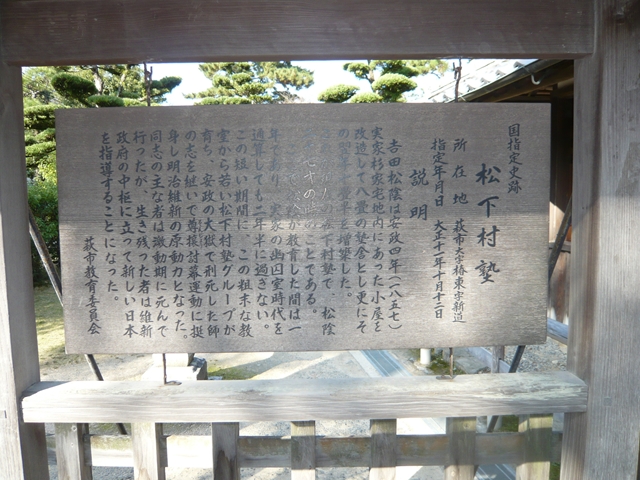 国指定史跡
松下村塾
所在地 萩市大字椿東字新道
指定年月日 大正十一年十月十二日
説明
吉田松陰は安政四年(一八五七)
実家杉家宅地内にあった小屋を
改造して八畳の塾舎とし更にそ
の翌年十畳半を増築した。
松下村塾で 松陰
のことである。
が教育した間は一
年であり、実家の幽囚室時代を
通算しても二年半に過ぎない。
この短い期間に、この粗末な教
室から若い松下村塾グループが
育ち、安政の大獄で刑死した師
の志を継いで尊攘討幕運動に挺
身し明治維新の原動力となった。
同志の主な者は激動期に死んで
行ったが、生き残った者は維新
政府の中枢に立って新しい日本
を指導することになった。
萩市教育委員会